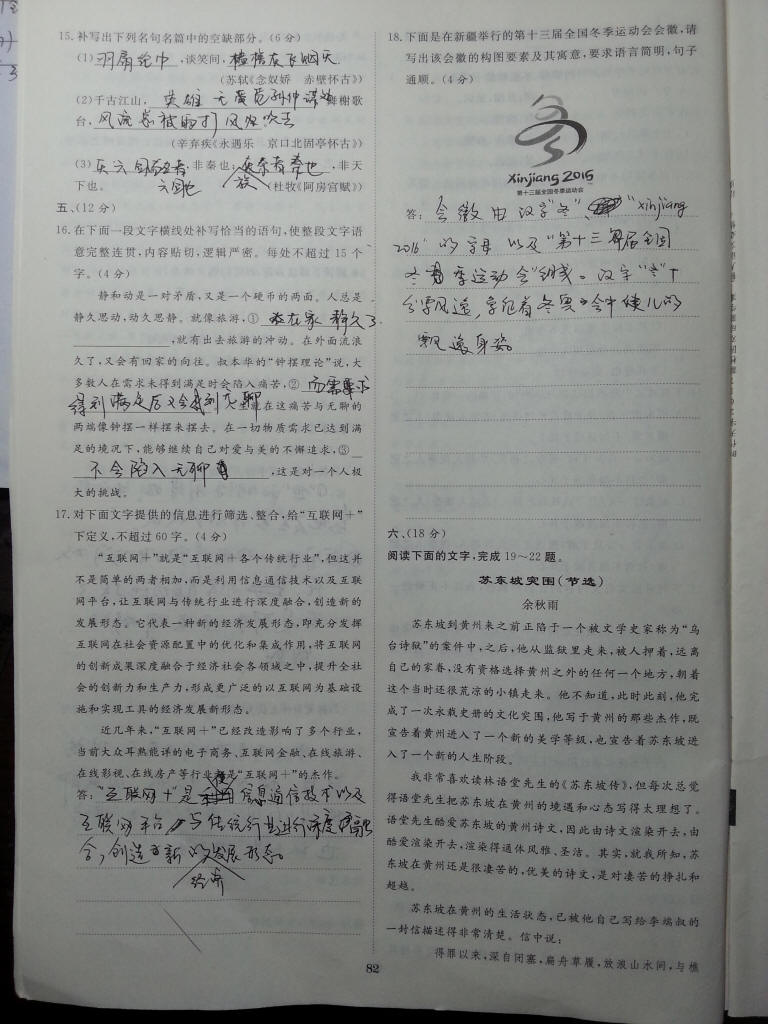 15. 补写出下列名句名篇中的空缺部分。(6分)
(1) 羽扇纶中,谈笑间,樯橹灰飞烟灭
(苏轼《念奴娇 赤壁怀古》)
(2)千古江山,英雄无觅孙仲谋处舞榭歌
台,风流总被雨打风吹去
(辛弃疾《永遇乐 京口北固亭怀古》)
(3)灭六国者,非秦也;族秦者秦也,非天
下也。 六国也 (杜牧《阿房宫赋》)
五、(12分)
16. 在下面一段文字横线处补写恰当的语句,使整段文字语
意完整连贯,内容贴切,逻辑严密。每处不超过15个
字。(4分)
静和动是一对矛盾,又是一个硬币的两面。人总是
静久思动,动久思静。就像旅游,① 在家静久了
,就有出去旅游的冲动。在外面流浪
久了,又会有回家的向往。叔本华的“钟摆理论”说,大
多数人在需求未得到满足时会陷入痛苦,② 而需求
得到满足后又会感到无聊
在这痛苦与无聊的
两端像钟摆一样摆来摆去。在一切物质需求已达到满
足的境况下,能够继续自己对爱与美的不懈追求,③
不会陷入无聊,这是对一个人极
大的挑战。
17. 对下面文字提供的信息进行筛选、整合,给“互联网+”
下定义,不超过60字。(4分)
“互联网+”就是“互联网+各个传统行业”,但这并
不是简单的两者相加,而是利用信息通信技术以及互联
网平台,让互联网与传统行业进行深度融合,创造新的
发展形态。它代表一种新的经济发展形态,即充分发挥
互联网在社会资源配置中的优化和集成作用,将互联网
的创新成果深度融合于经济社会各领域之中,提升全社
会的创新力和生产力,形成更广泛的以互联网为基础设
施和实现工具的经济发展新形态。
近几年来,“互联网+”已经改造影响了多个行业,
当前大众耳熟能详的电子商务、互联网金融、在线旅游、
在线影视、在线房产等行业都是“互联网+”的杰作。
答:“互联网+”是信息通信技术以及
互联网平台与传统行业进行深度融
合,创造新的发展形态。
经济
82
18. 下面是在新疆举行的第十三届全国冬季运动会会徽,请
写出该会徽的构图要素及其寓意,要求语言简明,句子
通顺。(4分)
Xinjiang 2016
第十三届全国冬季运动会
答:会徽由汉字“冬”、“xinjiang
2016”的字母以及“第十三届全国
冬季运动会”组成。汉字“冬”十
分飘逸,象征着冬奥会中健儿的
飘逸身姿
六、(18分)
阅读下面的文字,完成19~22题。
苏东坡突围(节选)
余秋雨
苏东坡到黄州来之前正陷于一个被文学史家称为“乌
台诗狱”的案件中,之后,他从监狱里走来,被人押着,远离
自己的家眷,没有资格选择黄州之外的任何一个地方,朝着
这个当时还很荒凉的小镇走来。他不知道,此时此刻,他完
成了一次永载史册的文化突围,他写于黄州的那些杰作,既
宣告着黄州进入了一个新的美学等级,也宣告着苏东坡进
入了一个新的人生阶段。
我非常喜欢读林语堂先生的《苏东坡传》,但每次总觉
得语堂先生把苏东坡在黄州的境遇和心态写得太理想了。
语堂先生酷爱苏东坡的黄州诗文,因此由诗文渲染开去,由
酷爱渲染开去,渲染得通体风雅、圣洁。其实,就我所知,苏
东坡在黄州还是很凄苦的,优美的诗文,是对凄苦的挣扎和
超越。
苏东坡在黄州的生活状态,已被他自己写给李端叔的
一封信描述得非常清楚。信中说:
得罪以来,深自闭塞,扁舟草履,放浪山水间,与樵